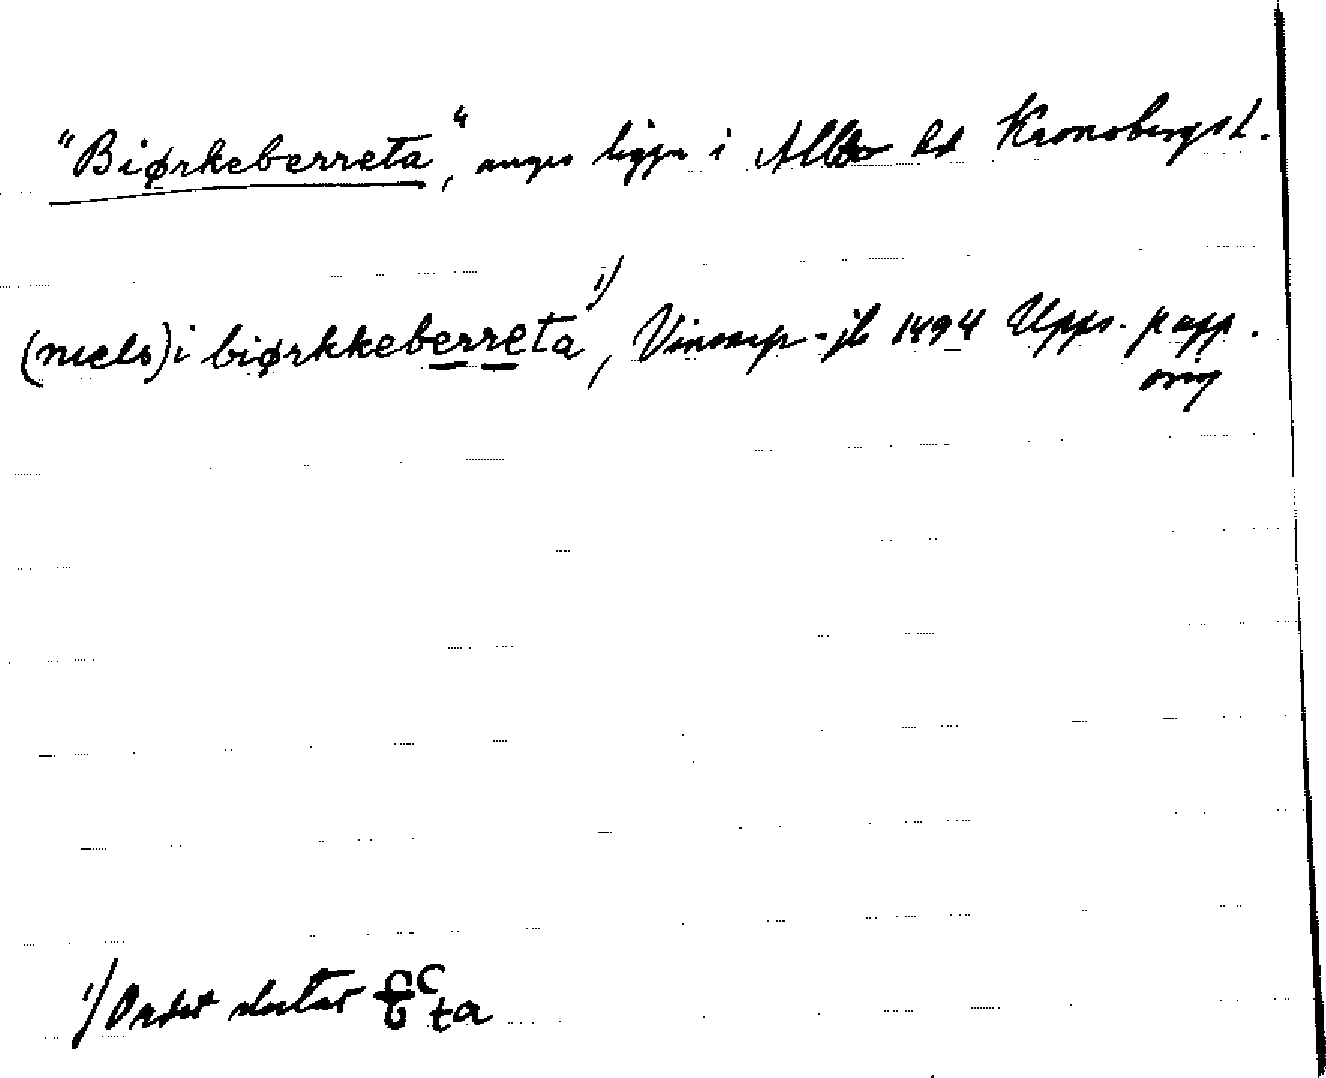 "Biørkeberreta", anges ligga i Allbo hd Kronobergs l.
(niels) i biørkkeberreta 1), Vinorup-jb 1494 Upps. papp.
orig
1) Ordet slutar ta